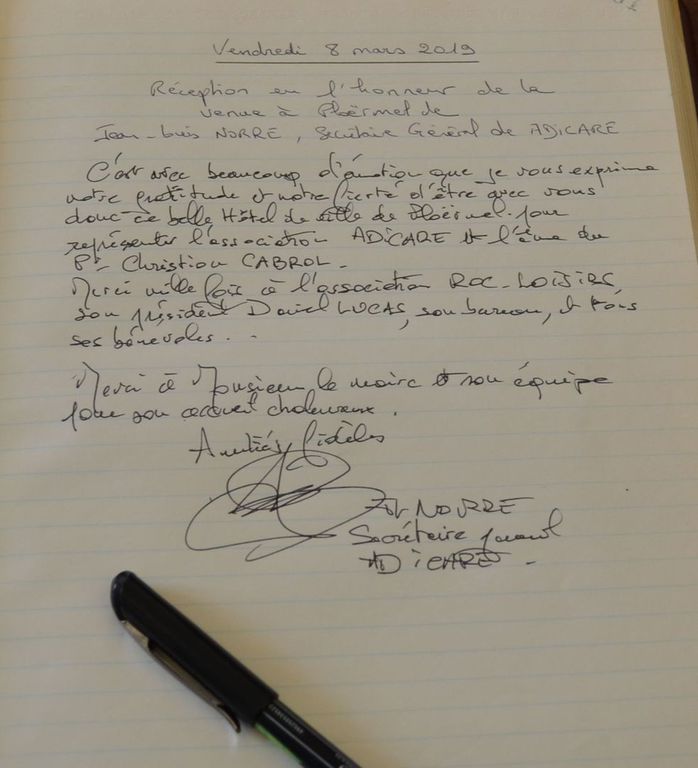 Vendredi 8 mars 2019
Réception en l'honneur de la
venue à Ploërmel de
Jean-Louis NORRE, Secrétaire Général de ADICARE
C'est avec beaucoup d'émotion que je vous exprime
notre gratitude et notre fierté d'être avec vous
dans ce bel Hôtel de ville de Ploërmel pour
représenter l'association ADICARE et l'âme du
Pr Christian CABROL.
Merci mille fois à l'association ROC-LOISIRS,
son président Daniel LUCAS, son bureau, et tous
ses bénévoles..
Merci à Monsieur le maire et son équipe
pour son accueil chaleureux.
Amitiés fidèles
NORRE
Secrétaire général
ADICARE.